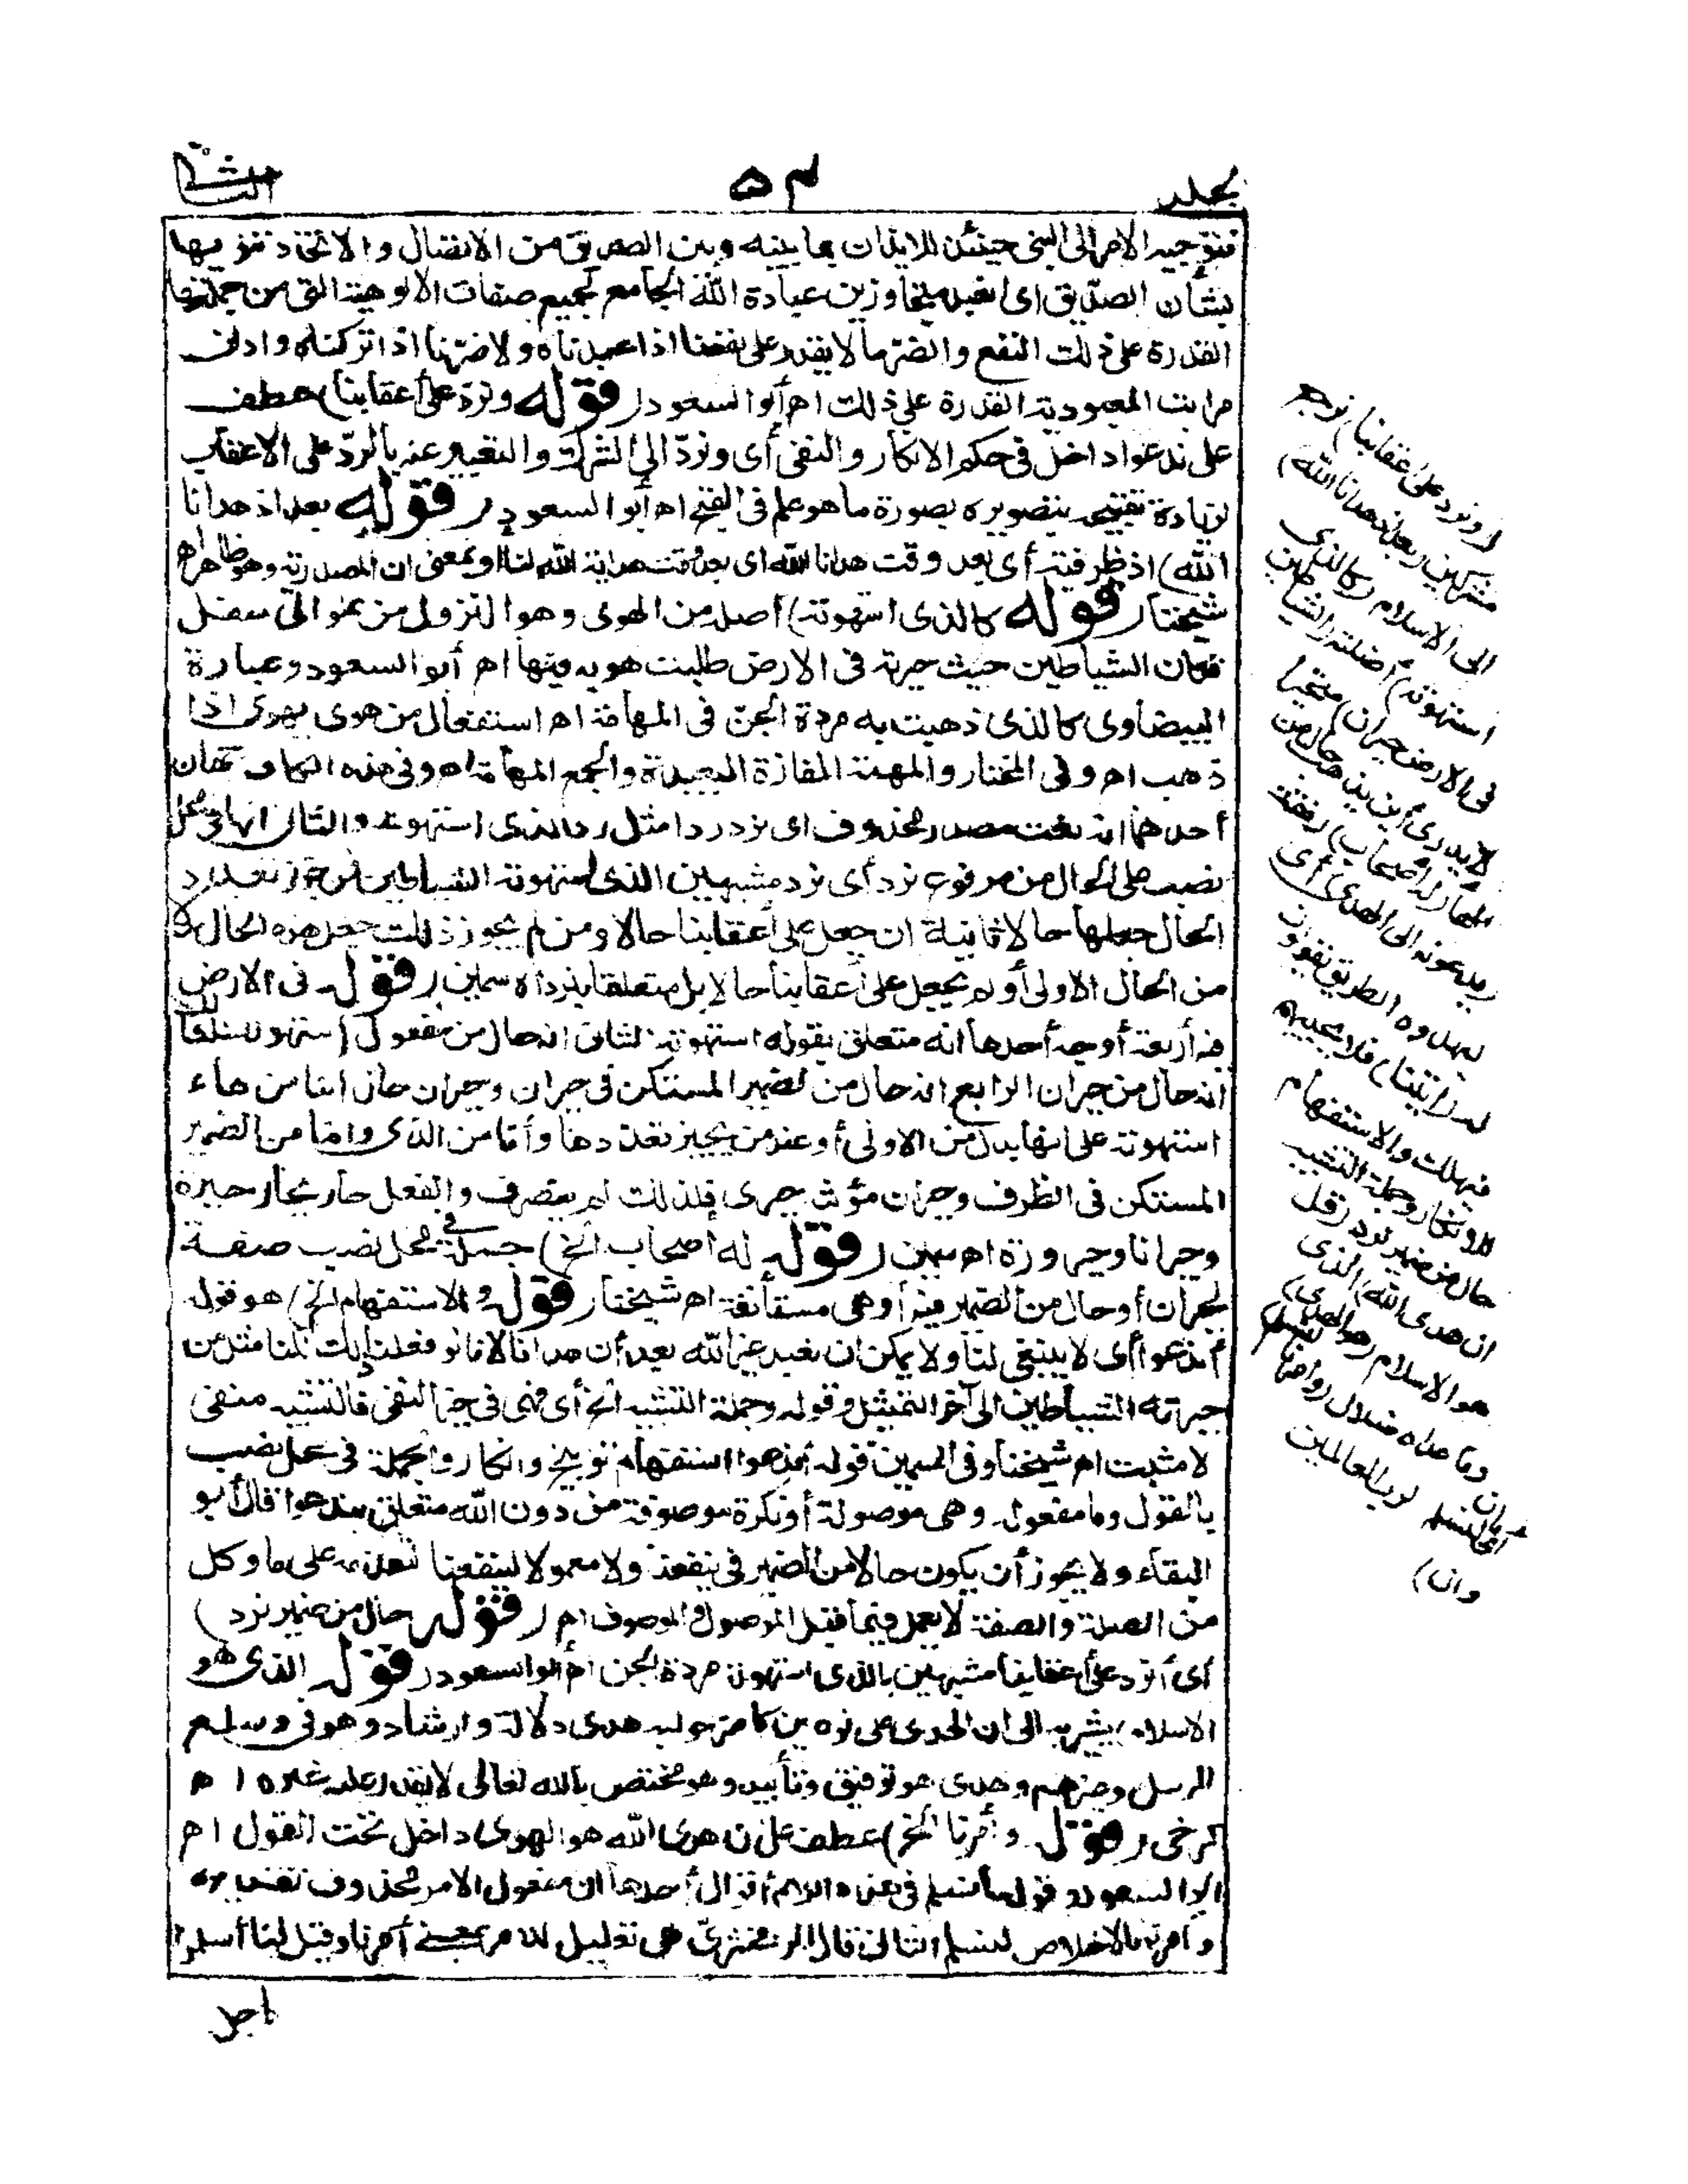 مجلد
٥٤
الثانى
فتوجيه الامر الى النبى حينئذ للايذان بما بينه وبين الصديق من الاتصال والاتحاد تنويها
بشأن الصديق اى انعبد متجاوزين عبادة الله الجامع لجميع صفات الالوهية التى من جملتها
القدرة على ذلك النفع والضر ما لا يقدر على نفعنا اذا عبدناه ولا ضرنا اذا تركناه وادنى
مراتب المعبودية القدرة على ذلك اه أبو السعود (قوله ونرد على أعقابنا) عطف
على ندعو داخل فى حكم الانكار والنفى أى ونرد الى الشرك والتعبير عنه بالرد على الاعقاب
لزيادة تقبيحه بتصويره بصورة ما هو علم فى القبح اه أبو السعود (قوله بعد اذ هدانا
الله) اذ ظرفية أى بعد وقت هدانا الله اى بعد وقت هداية الله لنا او بمعنى ان المصدرية وهو ظاهر اه
شيخنا (قوله كالذى استهوته) أصله من الهوى وهو النزول من علو الى سفل
فكأن الشياطين حيث حيرته فى الارض طلبت هويه فيها اه أبو السعود وعبارة
البيضاوى كالذى ذهبت به مردة الجن فى المهامه اه استفعال من هوى يهوى اذا
ذهب اه وفى المختار والمهمه المفازة البعيدة والجمع المهامه اه وفى هذه الكاف وجهان
أحدهما انه نعت مصدر محذوف اى نرد ردا مثل رد الذى استهوته والثانى انها فى محل
نصب على الحال من مرفوع نرد أى نرد مشبهين الذى استهوته الشياطين فمن جوز تعدد
الحال جعلها حالا ثانية ان جعل على أعقابنا حالا ومن لم يجوز ذلك جعل هذه الحال بدلا
من الحال الاولى أو لم يجعل على أعقابنا حالا بل متعلقا بنرد اه سمين (قوله فى الارض
فيه أربعة أوجه أحدها انه متعلق بقوله استهوته الثانى انه حال من مفعول استهوته الثالث
انه حال من حيران الرابع انه حال من الضمير المستكن فى حيران وحيران حال اما من هاء
استهوته على انها بدل من الاولى أو عند من يجيز تعددها وأما من الذى واما من الضمير
المستكن فى الظرف وحيران مؤنثه حيرى فلذلك لم يتصرف والفعل حار يحار حيرة
وحيرانا وحيرورة اه سمين (قوله له أصحاب الخ) جملة فى محل نصب صفة
لحيران أو حال من الضمير فيه أو هى مستأنفة اه شيخنا (قوله والاستفهام الخ) هو قوله
أندعو أى لا ينبغى لنا ولا يمكن ان نعبد غير الله بعد أن هدانا لاننا لو فعلنا ذلك لكنا مثل من
حيرته الشياطين الى آخر التمثيل وقوله وجملة التشبيه الخ أى فهى فى حيز النفى فالتشبيه منفى
لا مثبت اه شيخنا وفى السمين قوله أندعو استفهام توبيخ وانكار والجملة فى محل نصب
بالقول وما مفعول وهى موصولة أو نكرة موصوفة من دون الله متعلق بندعو قال أبو
البقاء ولا يجوز أن يكون حالا من الضمير فى ينفعنا ولا معمولا لينفعنا لتقدمه على ما وكل
من الصلة والصفة لا يعمل فيما قبل الموصول والموصوف اه (قوله حال من ضمير نرد)
أى أنرد على أعقابنا مشبهين بالذى استهوته مردة الجن اه أبو السعود (قوله الذى هو
الاسلام) يشير به الى ان الهدى على نوعين كما مر هدى دلالة وارشاد وهو فى وسع
الرسل وغيرهم وهدى هو توفيق وتأييد وهو مختص بالله تعالى لا يقدر عليه غيره اه
كرخى (قوله وأمرنا الخ) عطف على ان هدى الله هو الهدى داخل تحت القول اه
ابو السعود وقوله لنسلم فى هذه اللام أقوال أحدها ان مفعول الامر محذوف تقديره
وأمرنا بالاخلاص لنسلم الثانى قال الزمخشرى هى تعليل للامر بمعنى أمرنا وقيل لنا أسلموا
لاجل
(ونرد على أعقابنا) نرجع
مشركين (بعد اذ هدانا الله)
الى الاسلام (كالذى
استهوته) أضلته (الشياطين
فى الارض حيران) متحيرا
لا يدرى أين يذهب حال من
الهاء (له أصحاب) رفقة
(يدعونه الى الهدى) أى
ليهدوه الطريق يقولون
له (ائتنا) فلا يجيبهم
فيهلك والاستفهام
للانكار وجملة التشبيه
حال من ضمير نرد (قل
ان هدى الله) الذى
هو الاسلام (هو الهدى)
وما عداه ضلال (وأمرنا
لنسلم) أى بان نسلم لرب العالمين
وان)